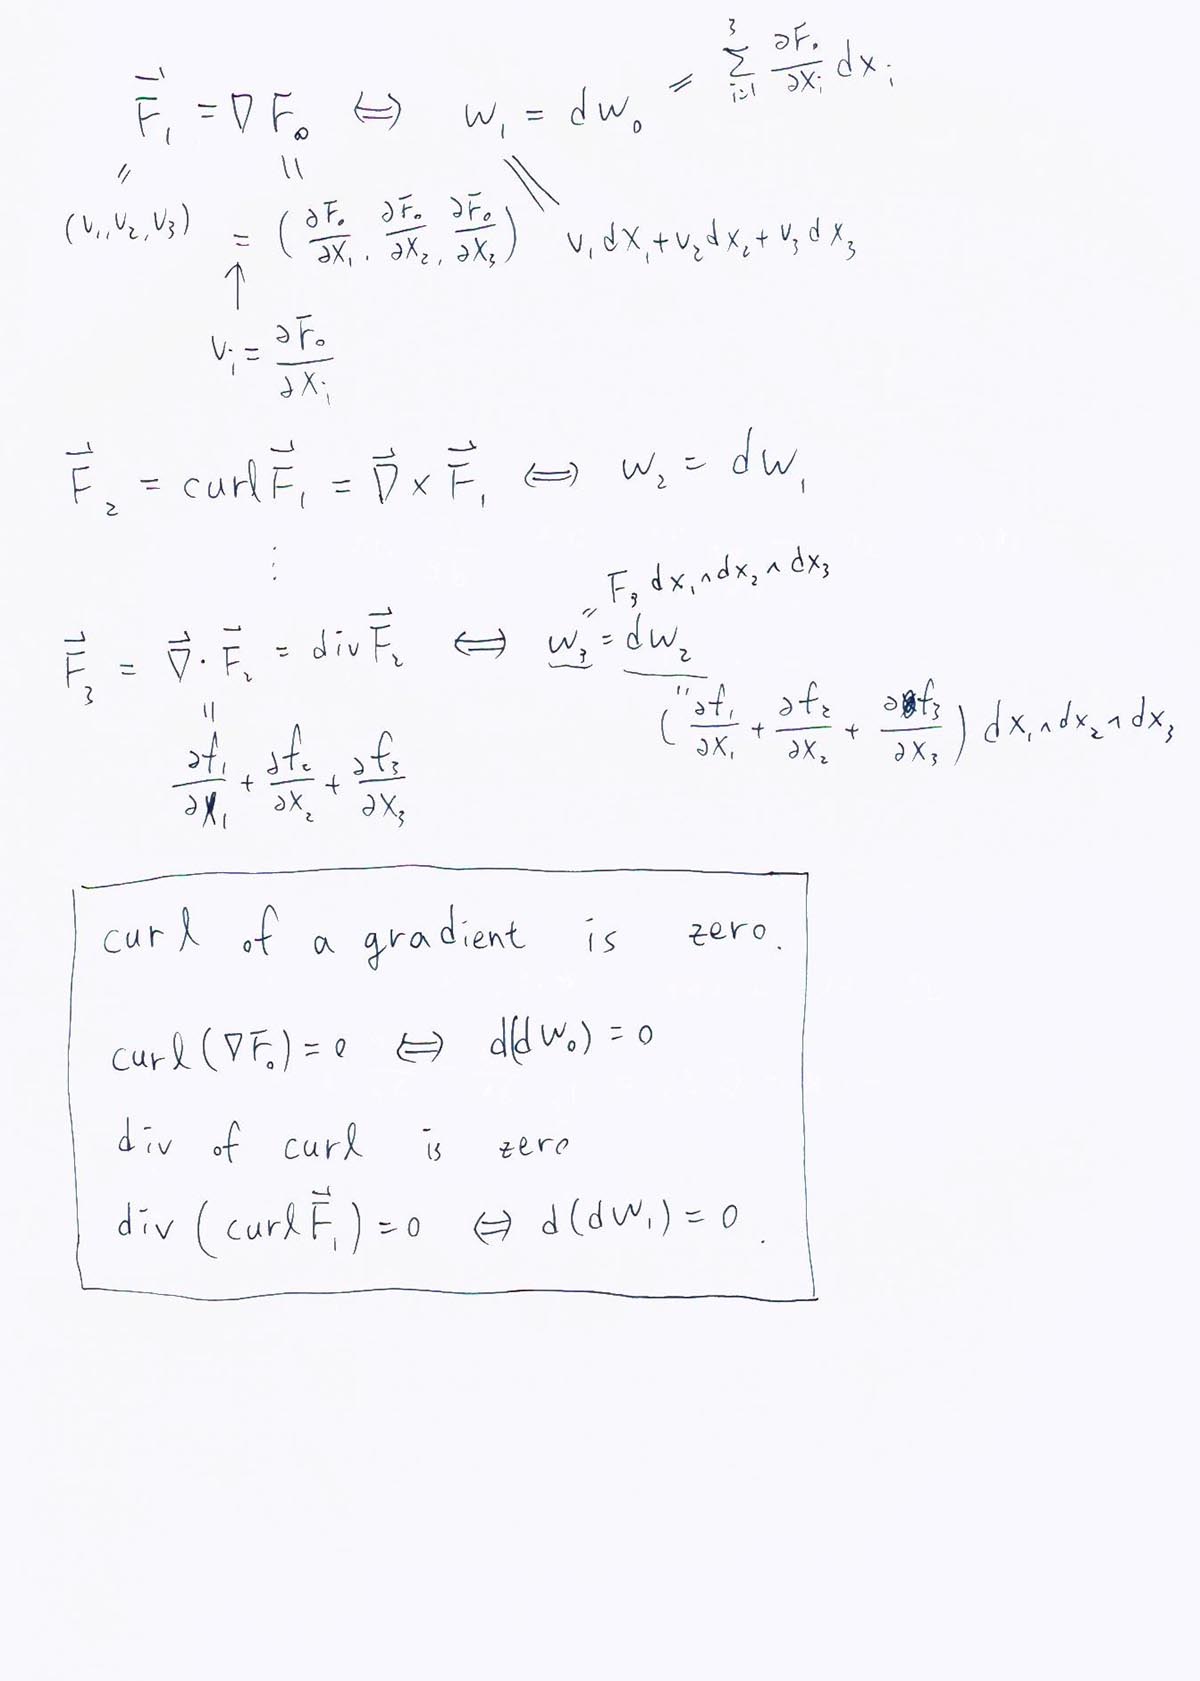 F⃗₁ = ∇F₀ ⟺ w₁ = dw₀ = ∑ᵢ₌₁³ ∂F₀/∂xᵢ dxᵢ
(v₁, v₂, v₃) = (∂F₀/∂x₁, ∂F₀/∂x₂, ∂F₀/∂x₃) v₁dx₁ + v₂dx₂ + v₃dx₃
↑
vᵢ = ∂F₀/∂xᵢ
F⃗₂ = curl F⃗₁ = ∇⃗ × F⃗₁ ⟺ w₂ = dw₁
⋮
F₃ dx₁ ∧ dx₂ ∧ dx₃
F⃗₃ = ∇⃗ · F⃗₂ = div F⃗₂ ⟺ w₃ = dw₂
(∂f₁/∂x₁ + ∂f₂/∂x₂ + ∂f₃/∂x₃) dx₁ ∧ dx₂ ∧ dx₃
∂f₁/∂x₁ + ∂f₂/∂x₂ + ∂f₃/∂x₃
curl of a gradient is zero.
curl(∇F₀) = 0 ⟺ d(dw₀) = 0
div of curl is zero
div(curl F⃗₁) = 0 ⟺ d(dw₁) = 0.